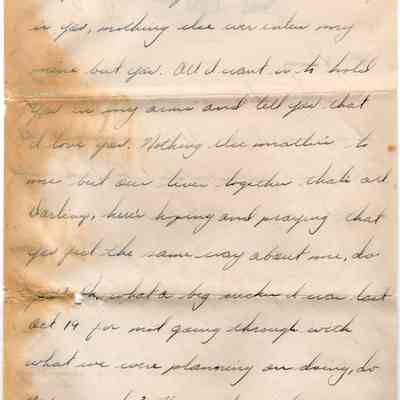 in yos, nothing else ever enters my
mine but yos. All I want is to hold
yos in my arms and tell yos that
I love yos. Nothing else matters to
me but our lives together thats all
Darling, here's hoping and praying that
yos feel the same way about me, do
what a big sucker I was last
Oct 14 for not going through with
what we were planning on doing, do